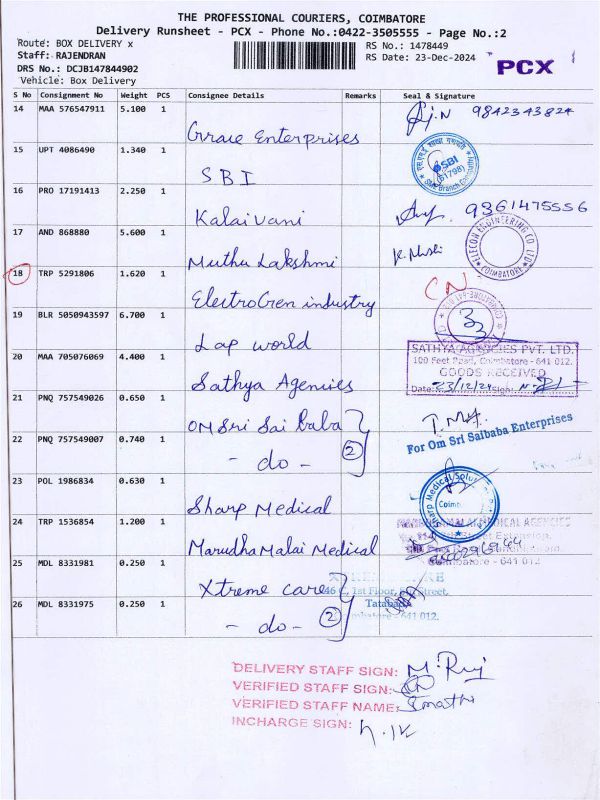 THE PROFESSIONAL COURIERS, COIMBATORE
Delivery Runsheet - PCX - Phone No.:0422-3505555 - Page No.:2
Route: BOX DELIVERY x
RS No.: 1478449
Staff: RAJENDRAN
RS Date: 23-Dec-2024
DRS No.: DCJB147844902
Vehicle: Box Delivery
PCX
S No Consignment No Weight PCS Consignee Details Remarks Seal & Signature
14 MAA 576547911 5.100 1 Grace Enterprises 9842343824
15 UPT 4086490 1.340 1 SBI
SBI
(61798)
SME Branch
16 PRO 17191413 2.250 1 Kalaivani 9361475556
17 AND 868880 5.600 1 Muthu Lakshmi
ELECON ENGINEERING CO. LTD.
COIMBATORE
18 TRP 5291806 1.620 1 ElectroGen industry CN
19 BLR 5050943597 6.700 1 Lap world
20 MAA 705076069 4.400 1 Sathya Agencies
SATHYA AGENCIES PVT. LTD.
100 Feet Road, Coimbatore - 641 012.
GOODS RECEIVED
Date: 23/12/24 Sign:
21 PNQ 757549026 0.650 1 OM Sri Sai Baba
For Om Sri Saibaba Enterprises
22 PNQ 757549007 0.740 1 - do - 2
23 POL 1986834 0.630 1 Sharp Medical
Sharp Medical Solutions
Coimbatore
24 TRP 1536854 1.200 1 Marudha Malai Medical
MEDICAL AGENCIES
Coimbatore - 641 012
25 MDL 8331981 0.250 1 Xtreme care
1st Floor,
Street,
Tatabad,
Coimbatore - 641 012.
26 MDL 8331975 0.250 1 - do - 2
DELIVERY STAFF SIGN: M. Raj
VERIFIED STAFF SIGN:
VERIFIED STAFF NAME:
INCHARGE SIGN: